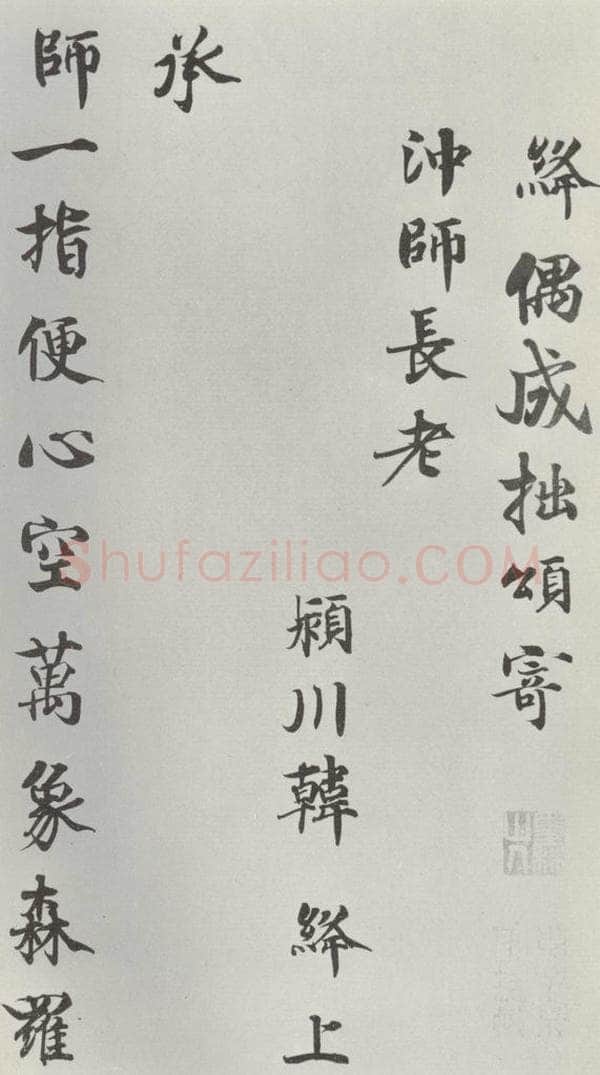 絳偶成拙頌寄
沖師長老
潁川韓絳上
承
師一指便心空萬象森羅
Shufaziliao.COM